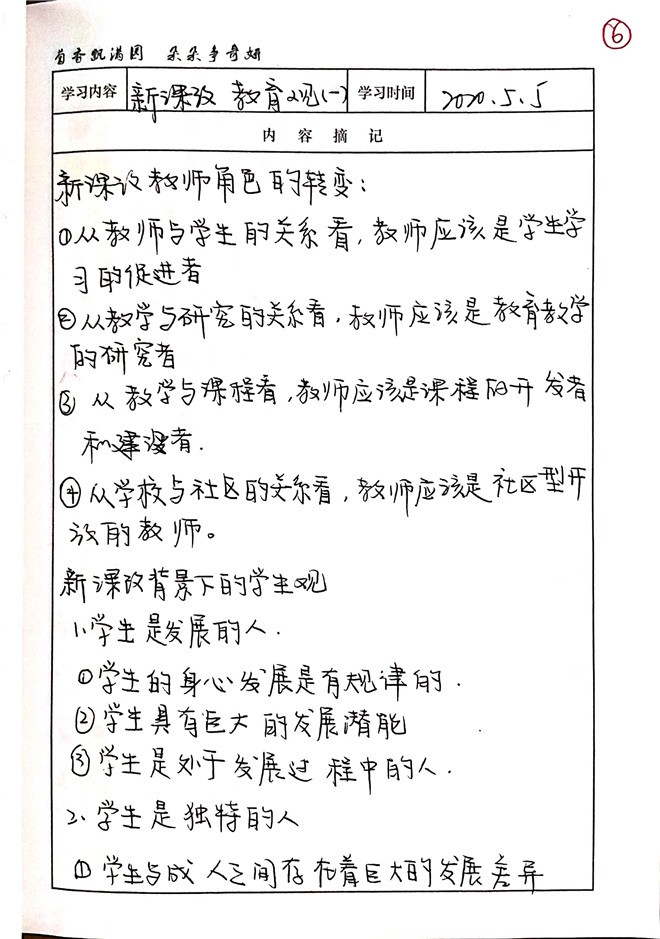 ⑥
苜香飘满园 朵朵争奇妍
学习内容 新课改 教育观(一) 学习时间 2020.5.5
内 容 摘 记
新课改教师角色的转变：
①从教师与学生的关系看，教师应该是学生学
习的促进者
②从教学与研究的关系看，教师应该是教育教学
的研究者
③ 从教学与课程看，教师应该是课程的开发者
和建设者.
④从学校与社区的关系看，教师应该是社区型开
放的教师。
新课改背景下的学生观
1、学生是发展的人.
①学生的身心发展是有规律的.
②学生具有巨大的发展潜能
③学生是处于发展过程中的人.
2、学生是独特的人
①学生与成人之间存在着巨大的发展差异